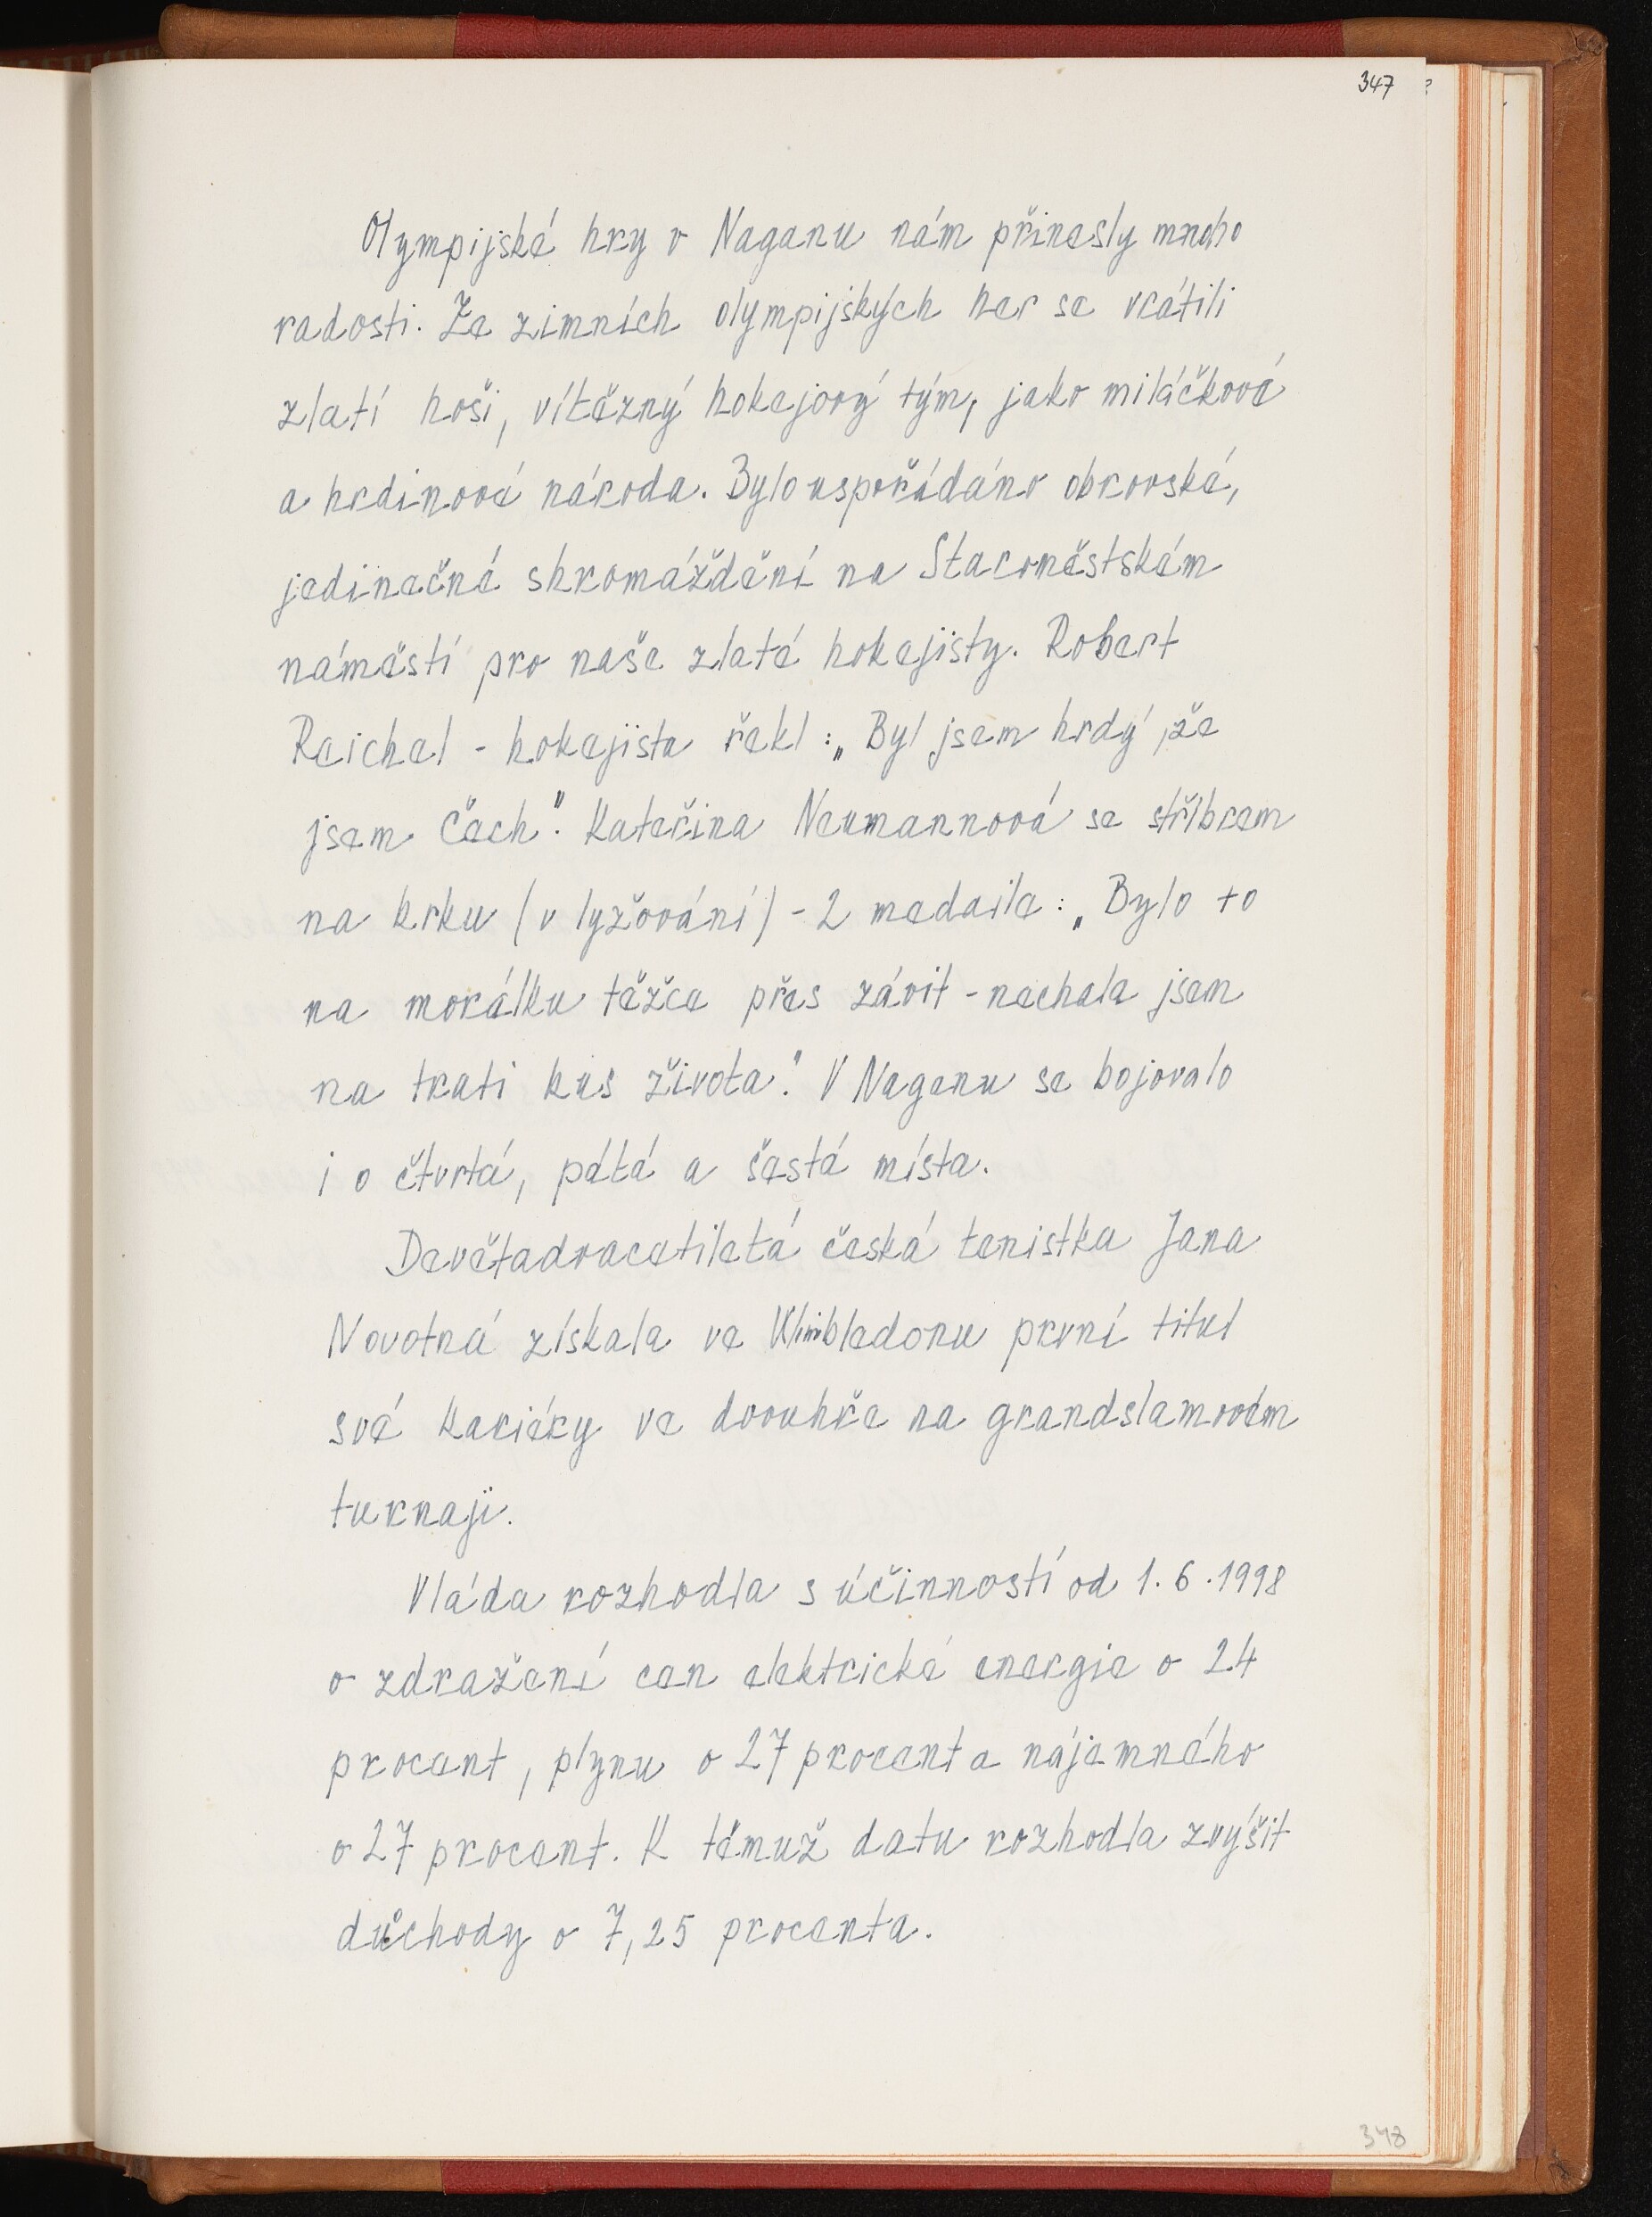 347
Olympijské hry v Naganu nám přinesly mnoho
radosti. Ze zimních olympijských her se vrátili
zlatí hoši, vítězný hokejový tým, jako miláčkové
a hrdinové národa. Bylo uspořádáno obrovské,
jedinečné shromáždění na Staroměstském
náměstí pro naše zlaté hokejisty. Robert
Reichel - hokejista řekl: „Byl jsem hrdý, že
jsem Čech". Kateřina Neumannová se stříbrem
na krku (v lyžování) - 2 medaile: „Bylo to
na morálku těžce přes závit - nechala jsem
na trati kus života." V Naganu se bojovalo
i o čtvrtá, pátá a šestá místa.
Devětadvacetiletá česká tenistka Jana
Novotná získala ve Wimbledonu první titul
své kariéry ve dvouhře na grandslamovém
turnaji.
Vláda rozhodla s účinností od 1. 6. 1998
o zdražení cen elektrické energie o 24
procent, plynu o 27 procent a nájemného
o 27 procent. K témuž datu rozhodla zvýšit
důchody o 7,25 procenta.
348